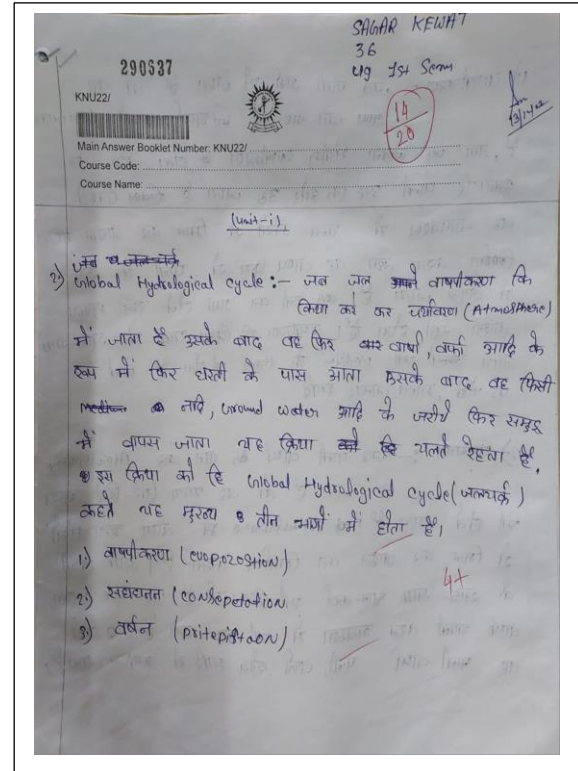 SAGAR KEWAT
36
Ug 1st Sem
290537
KNU22/
14
20
13/12/22
Main Answer Booklet Number: KNU22/
Course Code:
Course Name:
(Unit-i)
2) Global Hydrological Cycle :- जब जल वाष्पीकरण कि
क्रिया कर कर पर्यावरण (Atmosphere)
में जाता है उसके बाद वह फिर वार्षा, वर्फा आदि के
रूप में फिर धरती के पास आता इसके बाद वह किसी
नादि, Ground water आदि के जरीये फिर समुद्र
में वापस जाता यह क्रिया चलते रेहता है,
इस क्रिया को हि Global Hydrological Cycle (जलचर्क)
कहते यह मुख्य तीन भागों में होता है।
1.) वाष्पीकरण (evopozostion)
2.) संघंघनन (consepetation
3.) वर्षन (pritepistaon)
4+